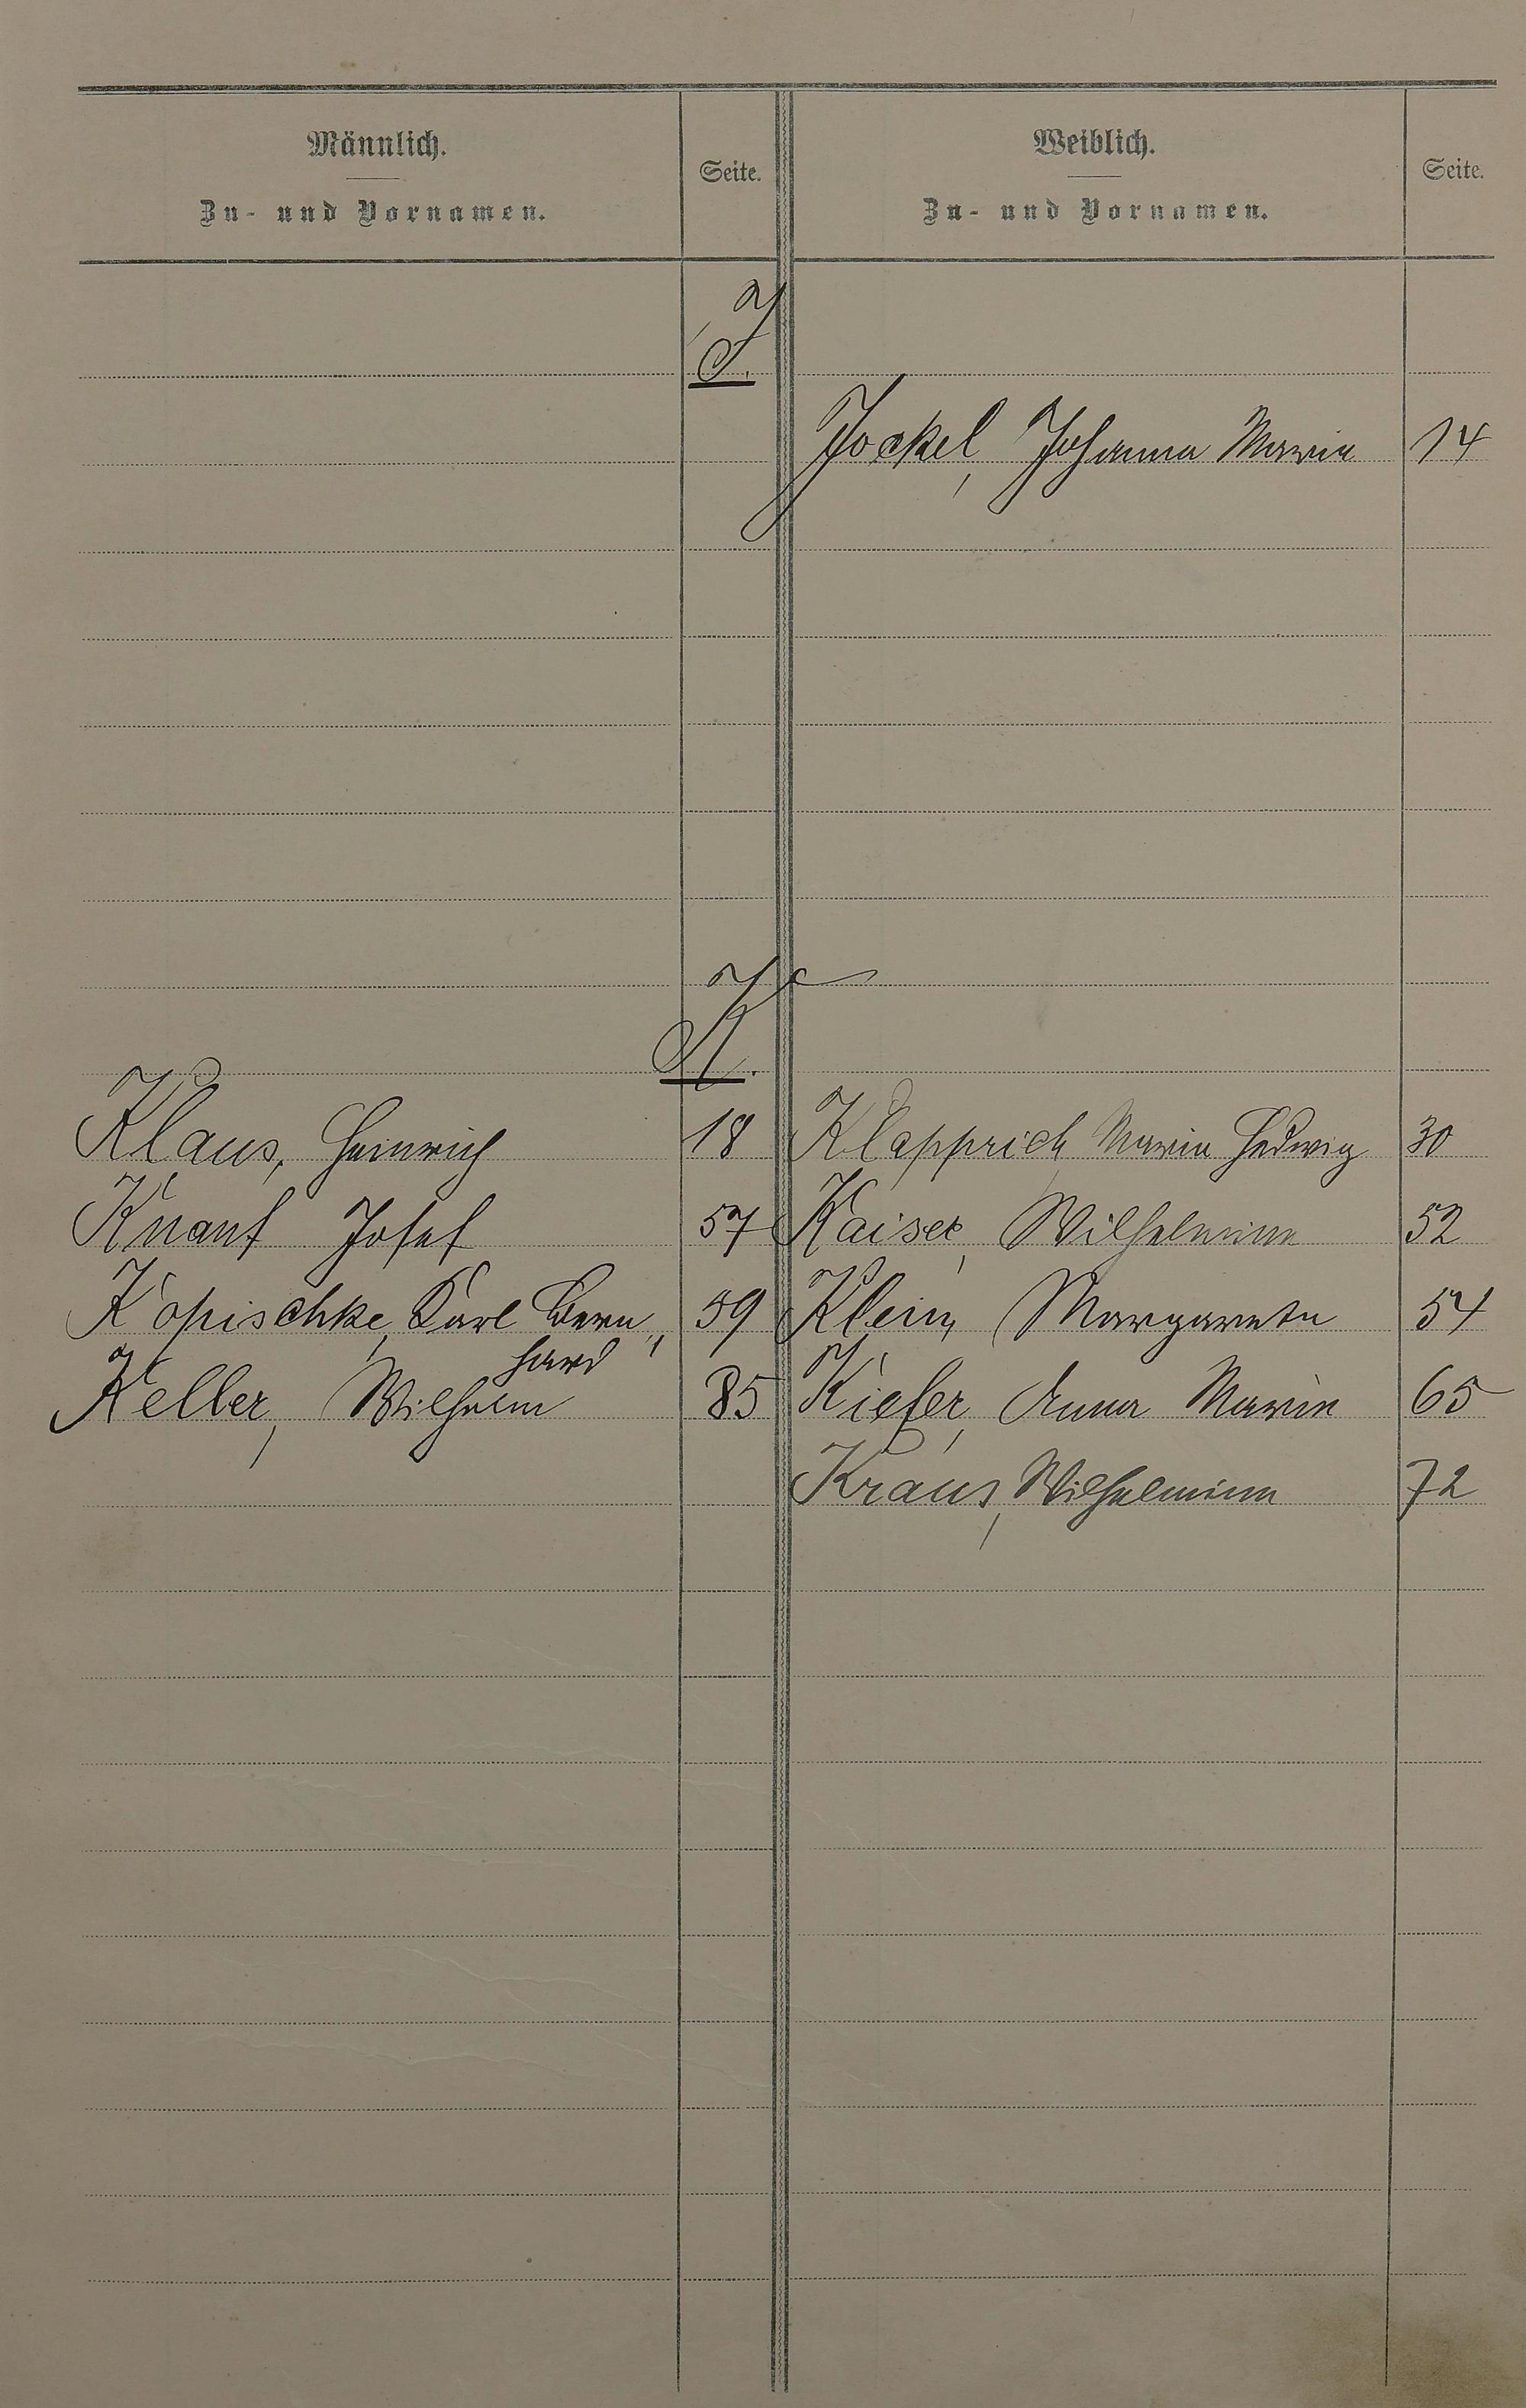 Männlich.
Zu- und Vornamen.
Seite.
Weiblich.
Zu- und Vornamen.
Seite.
J.
Jockel, Johanna Maria 14
K.
Klaus, Heinrich 18 Klapprich, Maria Hedwig 30
Knauf Josef 57 Kaiser, Wilhelmina 52
Kopischke, Karl Bern„ 59 Klein, Margareta 54
hard
Keller, Wilhelm 85 Kiefer, Anna Maria 65
Kraus, Wilhelmina 72